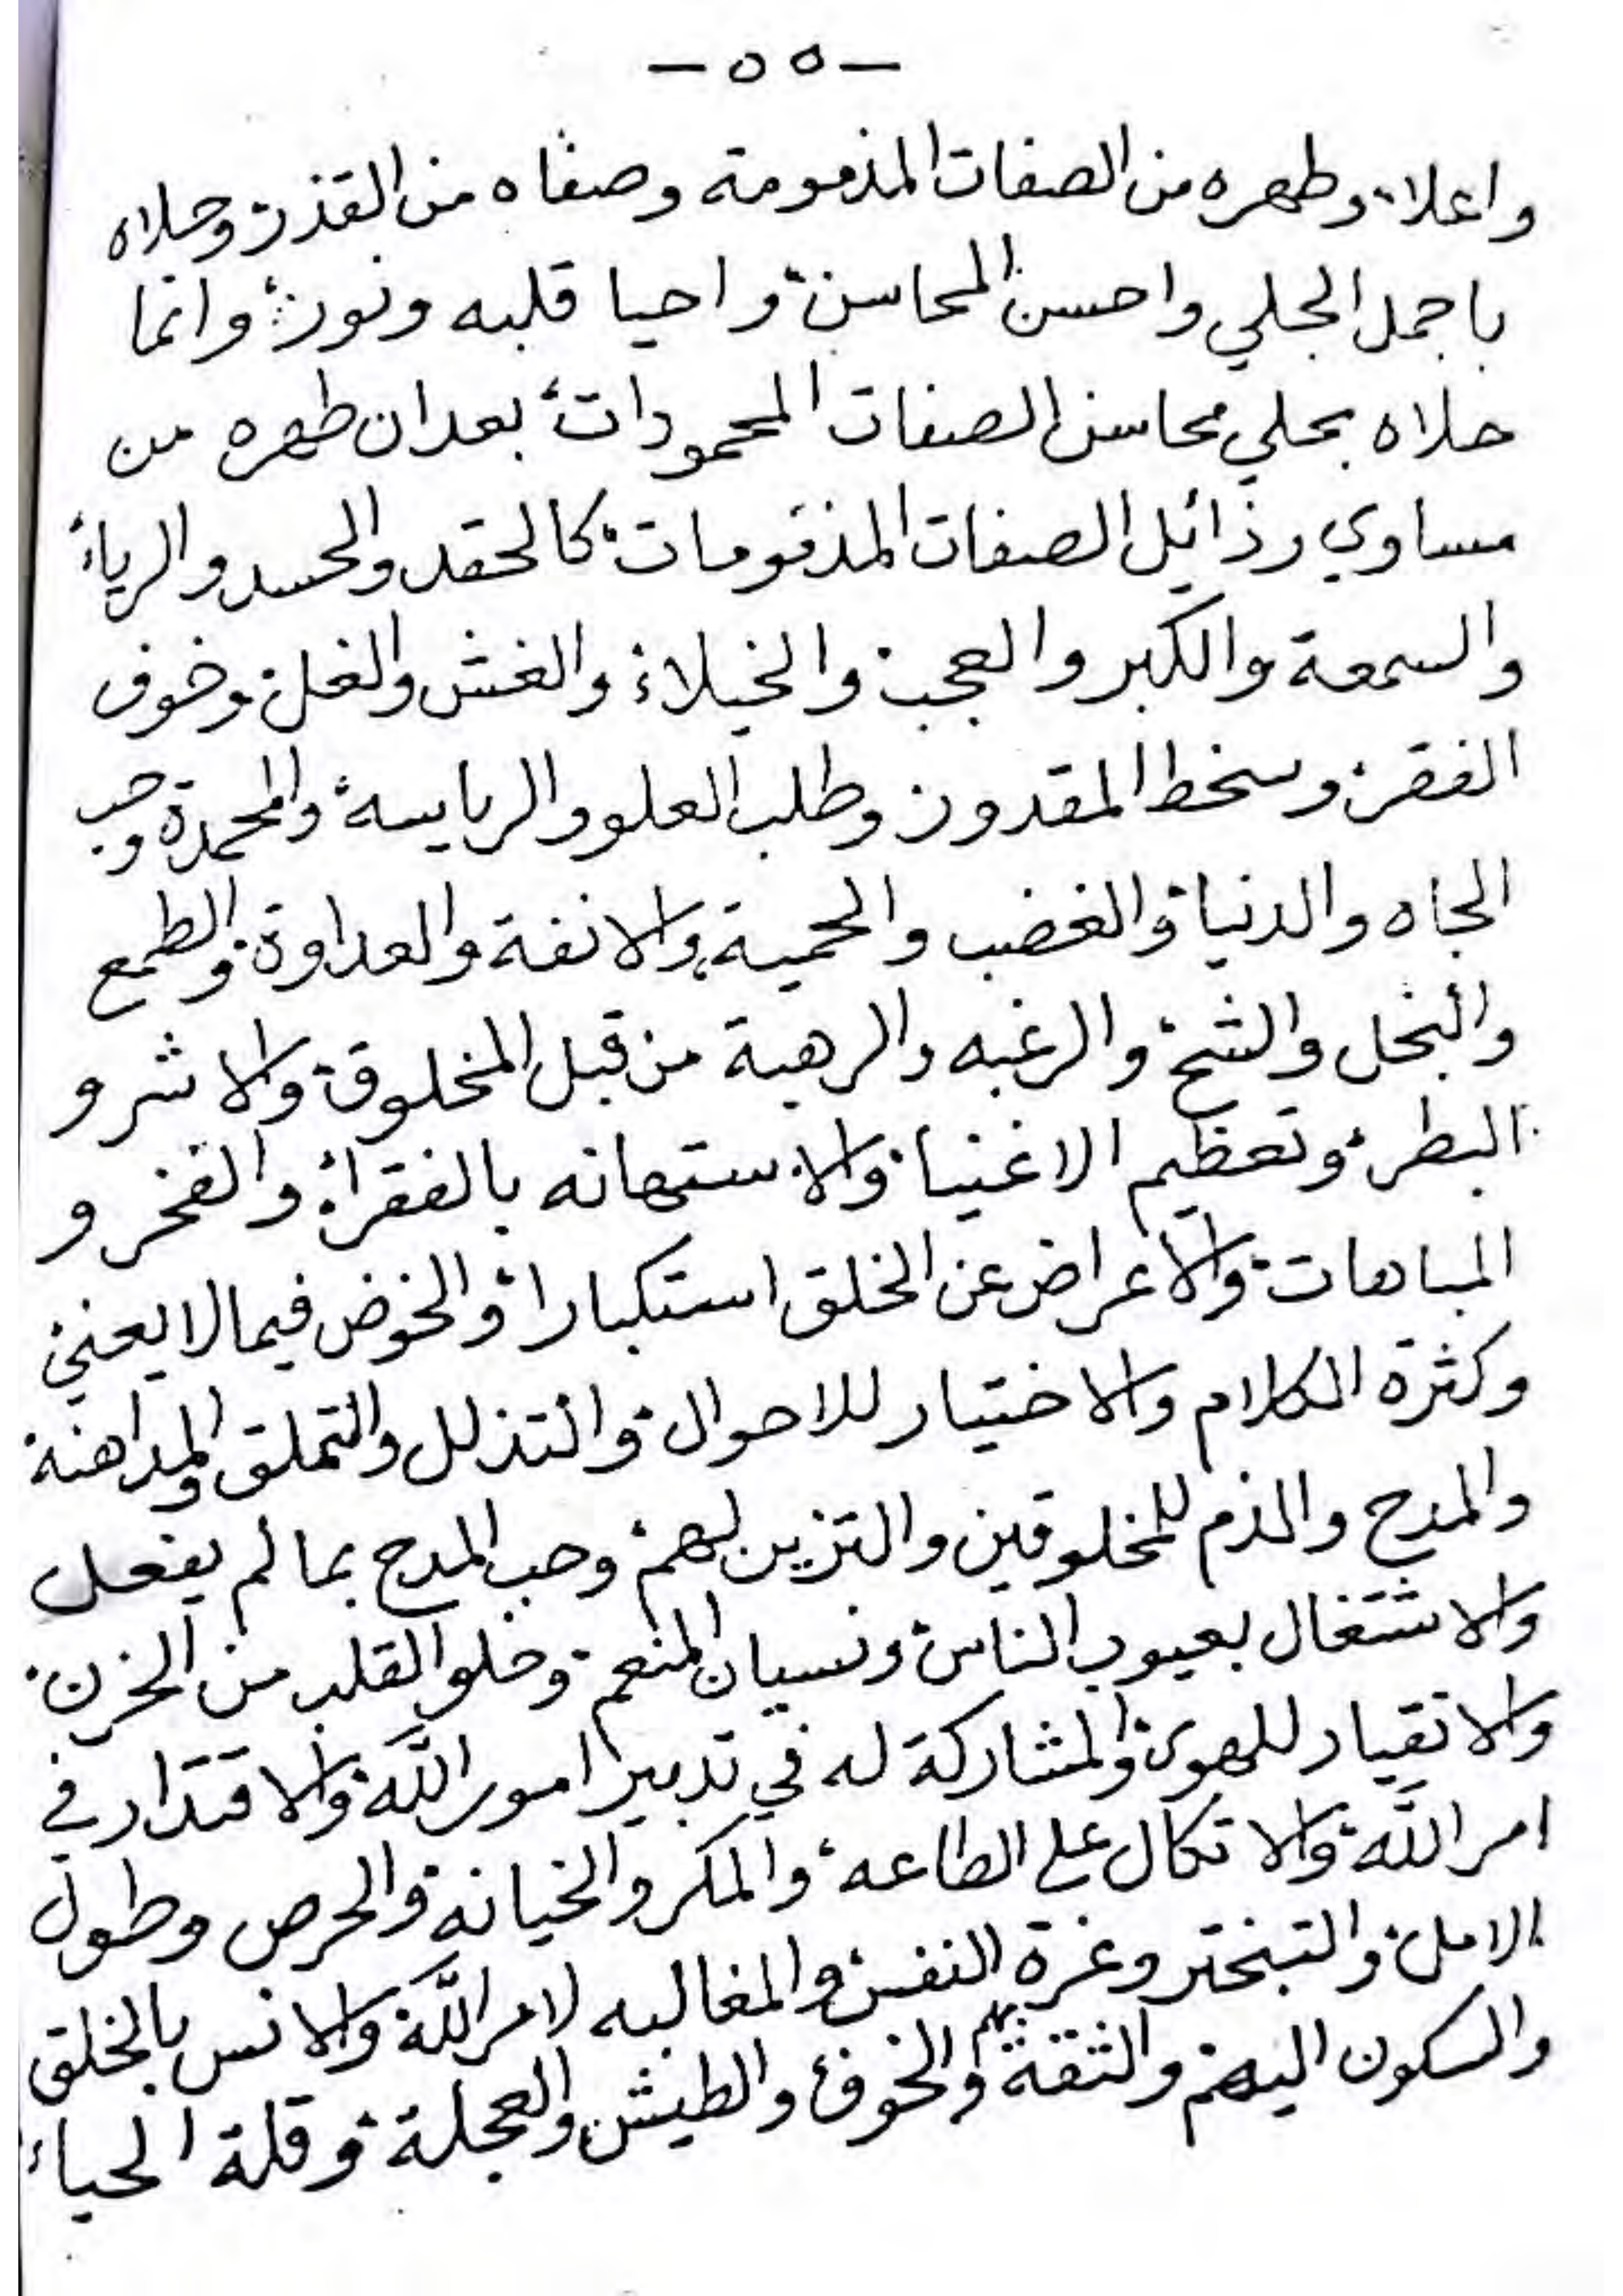 -٥٥-
واعلاه وطهره من الصفات المذمومة وصفاه من القذر وحلاه
باجمل الحلي واحسن المحاسن، واحيا قلبه ونوره، وانما
حلاه بحلي محاسن الصفات المحمودات، بعد ان طهره من
مساوي رذائل الصفات المذمومات، كالحقد والحسد والرياء
والسمعة والكبر والعجب، والخيلاء، والغش والغل، وخوف
الفقر، وسخط المقدور، وطلب العلو والرياسة، والمحمدة وحب
الجاه والدنيا، والغضب والحمية، والانفة والعداوة، والطمع
والبخل والشح، والرغبه والرهبة من قبل المخلوق، والاشر و
البطر، وتعظيم الاغنيا، والاستهانه بالفقراء، والفخر و
المباهات، والاعراض عن الخلق استكبارا، والخوض فيما لا يعني
وكثرة الكلام والاختيار للاحوال، والتذلل والتملق والمداهنة
والمدح والذم للمخلوقين والتزين لهم، وحب المدح بما لم يفعل
والاشتغال بعيوب الناس، ونسيان المنعم، وخلو القلب من الحزن.
والانقياد للهوى، والمشاركة له في تدبير امور الله، والاقتدار في
امر الله، والاتكال على الطاعه، والمكر والخيانة، والحرص وطول
الامل، والتبختر وغرة النفس، والمغالبه لامر الله، والانس بالخلق
والسكون اليهم، والثقة بهم، والخوف، والطيش والعجلة، وقلة الحياء